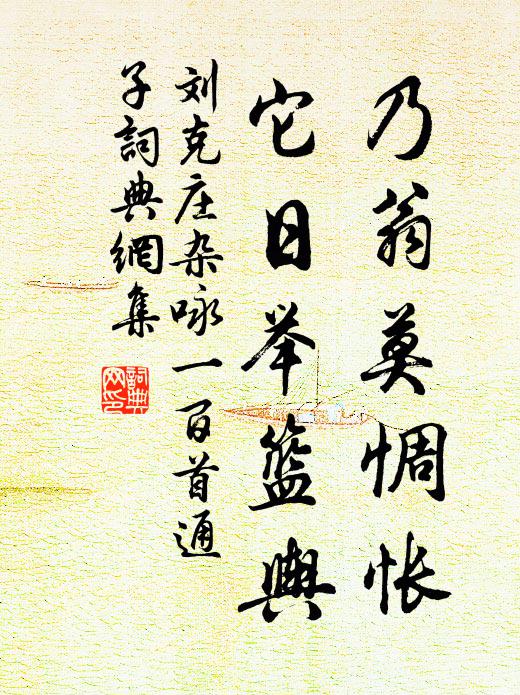 乃翁莫惆怅
它日举篮舆
刘克庄杂咏一百首通
子詞典網集
詞典
网印